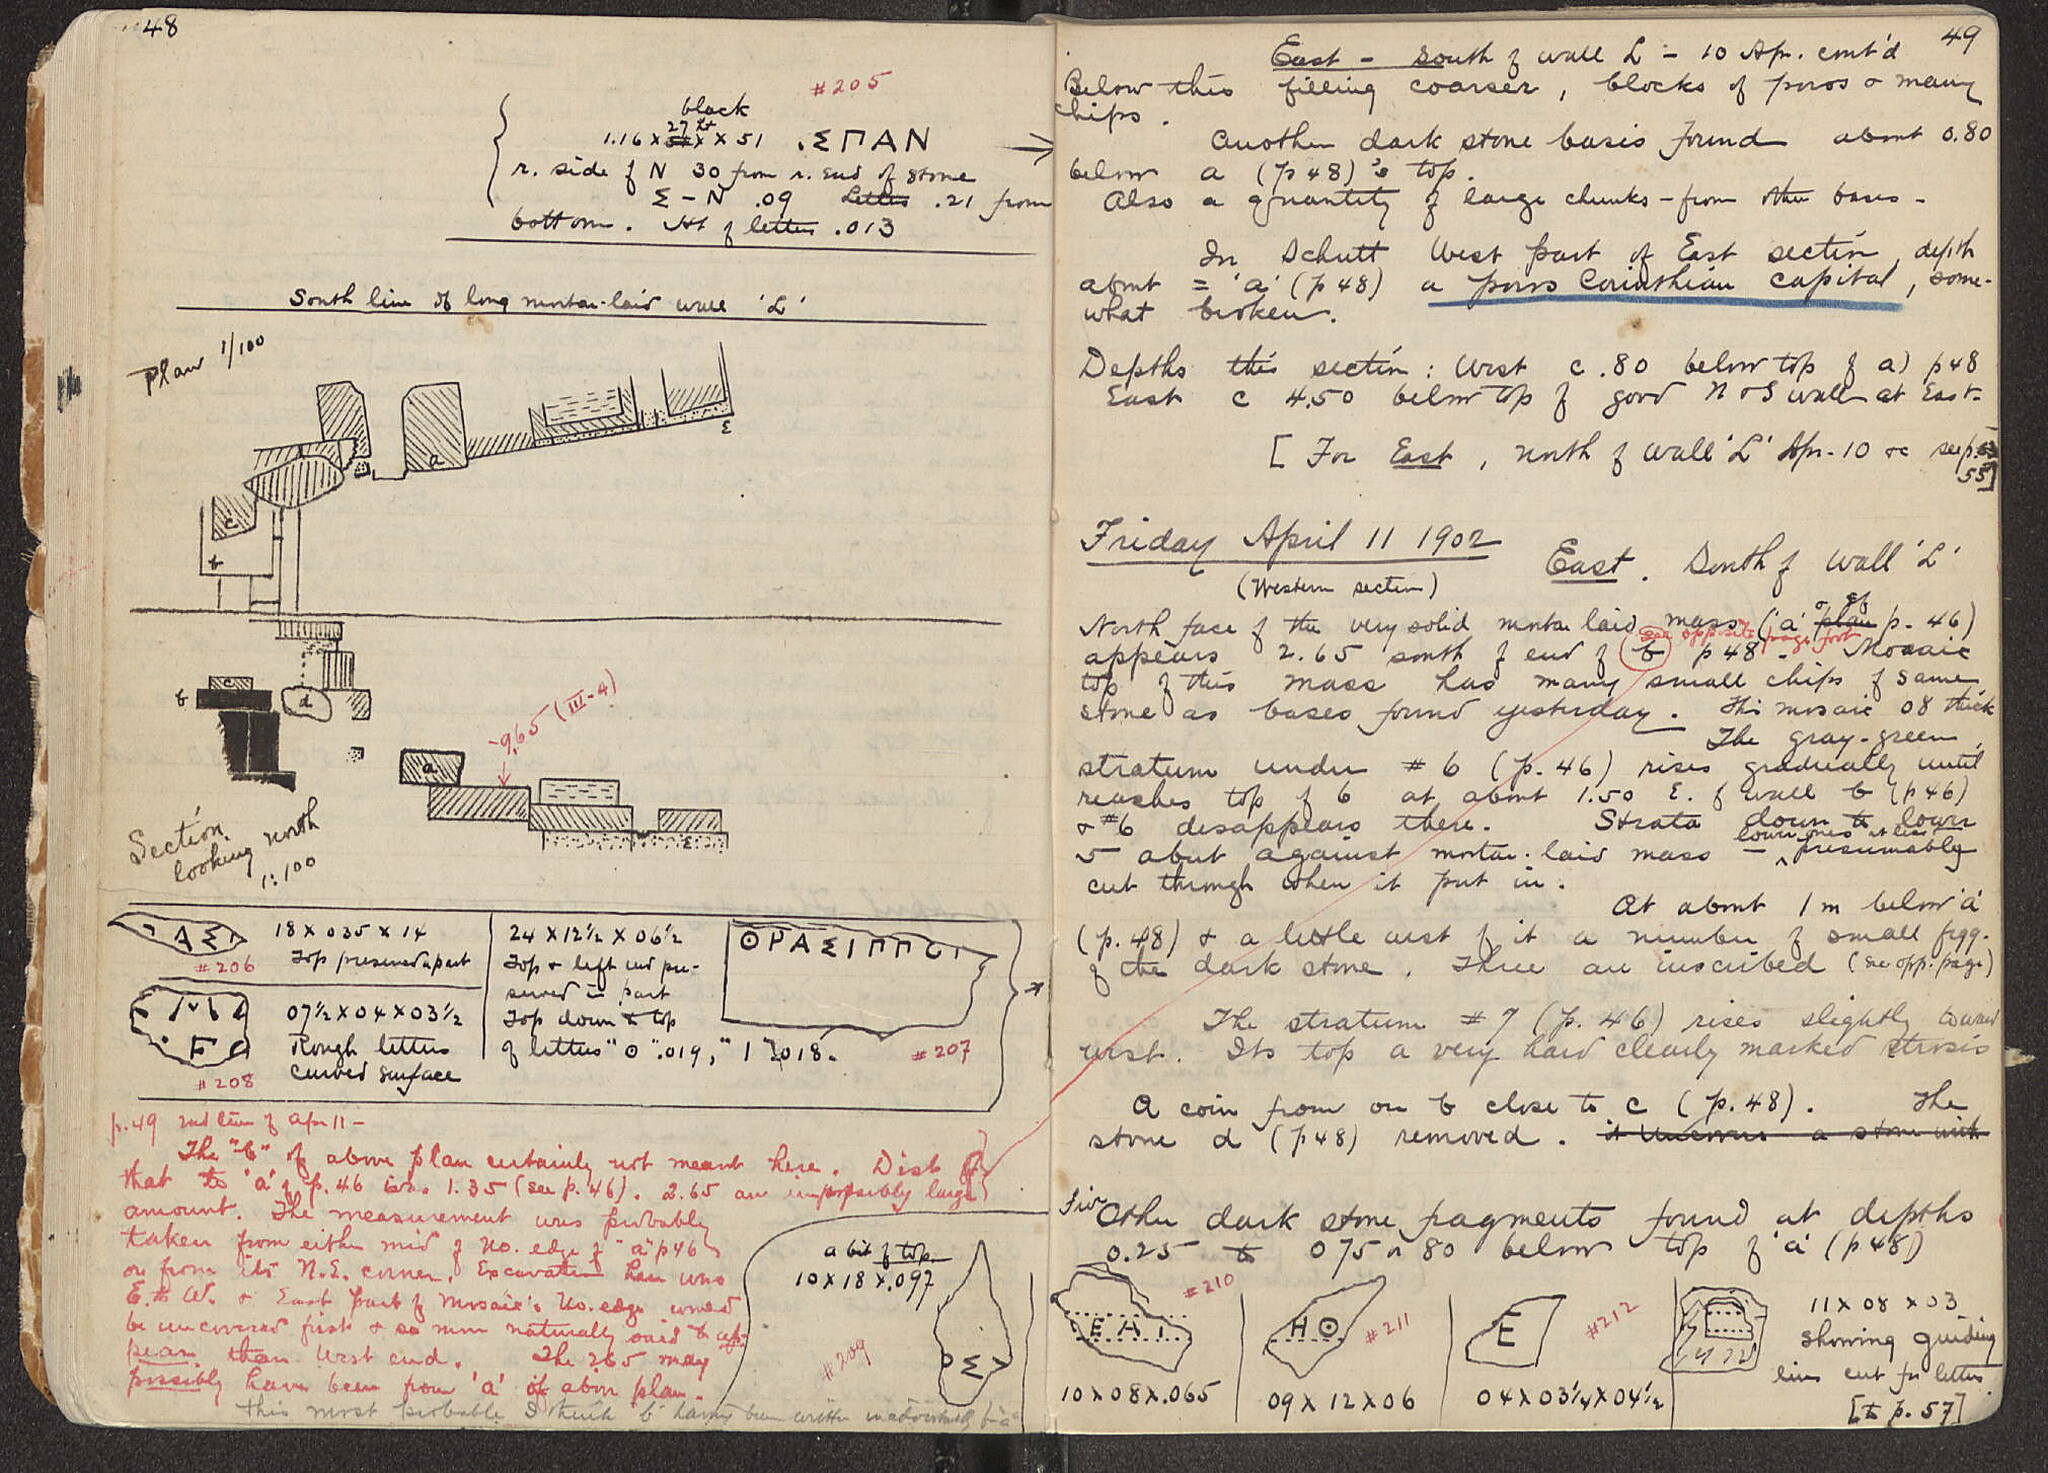 48
#205
black
27
1.16 x x 51 .ΣΠΑΝ
r. side of N 30 from r. end of stone
Σ - N .09 Letters .21 from
bottom. Ht of letters .013
South line of long mortar-laid wall 'L'
Plan 1/100
a
Σ
c
b
c
b
d
-9.65 (III-4)
a
Σ
Section
looking north
1:100
ΑΣΙ
#206
18 x 035 x 14
Top preserved apart
#208
07½ x 04 x 03½
Rough letters
curved surface
24 x 12½ x 06½
Top & left end pre-
served in part
Top down to top
of letters "Θ" .019, "Ι" .018.
ΘΡΑΣΙΠΠΟΙ
#207
p. 49 2nd line of Apr 11 -
The "b" of above plan certainly not meant here. Dist of
that to 'a' of p. 46 was 1.35 (see p. 46). 2.65 an impossibly large
amount. The measurement was probably
taken from either mid of No. edge of "a" p 46
or from its N.E. corner. Excavation here was
E. to W. & East part of Mosaic's No. edge would
be uncovered first & so more naturally said to ap-
pear than West end. The 265 may
possibly have been from 'a' of above plan.
This most probable I think 'b' having been written inadvertently for 'a'
a bit of top.
10 x 18 x .097
#209
ΟΣΥ
49
East - South of wall L - 10 Apr. cont'd
Below this filling coarser, blocks of poros & many
chips.
Another dark stone basis found about 0.80
below a (p 48)'s top.
Also a quantity of large chunks - from other bases -
In Schutt West part of East section, depth
about = 'a' (p 48) a poros Corinthian capital, some-
what broken.
Depths this section: West c .80 below top of a) p 48
East c 4.50 below top of good N & S wall at East.
[ For East, north of wall 'L' Apr-10 &c see p.
55]
Friday April 11 1902 East. South of wall 'L'
(Western section)
North face of the very solid mortar laid mass ('a' plan p. 46)
see opposite page foot
appears 2.65 south of end of b p 48. Mosaic
top of this mass has many small chips of same
stone as bases found yesterday. This mosaic 08 thick
The gray-green
stratum under #6 (p. 46) rises gradually until
reaches top of 6 at about 1.50 E. of wall b (p 46)
& #6 disappears there. Strata down to lower
5 abut against mortar-laid mass - lower ones at least presumably
cut through when it put in.
At about 1 m below 'a'
(p. 48) & a little west of it a number of small fragg.
of the dark stone. Three are inscribed (see opp. page)
The stratum #7 (p. 46) rises slightly toward
west. Its top a very hard clearly marked strosis
A coin from on b close to c (p. 48). The
stone d (p 48) removed. it uncovers a stone with
Five
Other dark stone fragments found at depths
0.25 to 075 or 80 below top of 'a' (p 48)
ΕΛΙ
#210
10 x 08 x .065
ΗΘ
#211
09 x 12 x 06
Ε
#212
04 x 03¼ x 04½
11 x 08 x 03
showing guiding
lines cut for letters
[to p. 57]